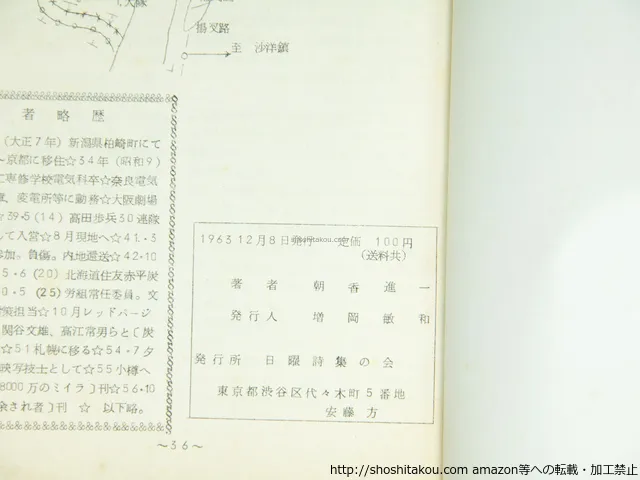 大隊
揚叉路
至 沙洋鎮
者略歴
(大正7年)新潟県柏崎町にて
〜京都に移住☆34年(昭和9)
工専修学校電気科卒☆奈良電気
変電所等に勤務☆大阪劇場
☆39・5(14)高田歩兵30連隊
して入営☆8月現地へ☆41・3
参加。負傷。内地還送☆42・10
5・6(20)北海道住友赤平炭
0・5(25)労組常任委員。文
策担当☆10月レッドパージ
関谷文雄、高江常男らと〔炭
☆51札幌に移る☆54・7夕
映写技士として☆55小樽へ
8000万のミイラ〕刊☆56・10
余され者〕刊 ☆ 以下略。
1963 12月8日発行 定価 100円
(送料共)
著者 朝香進一
発行人 増岡敏和
発行所 日曜詩集の会
東京都渋谷区代々木町5番地
安藤方
〜36〜
shoshitakou.com
http://shoshitakou.com amazon等への転載・加工禁止